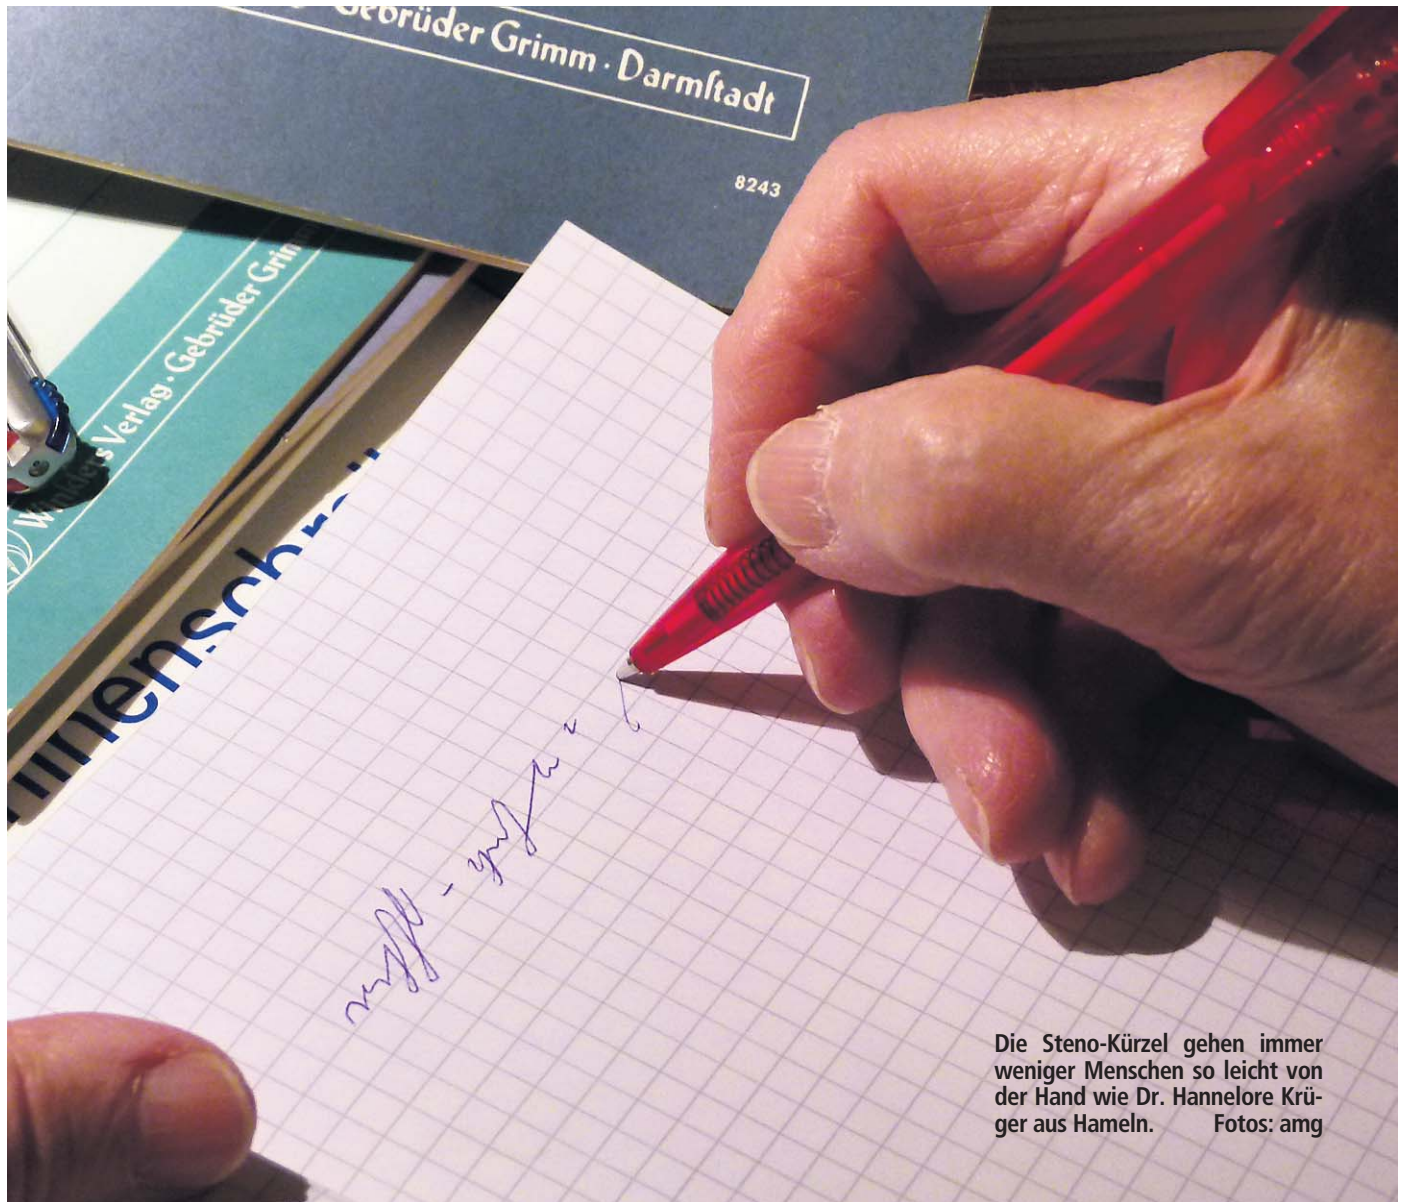 Gebrüder Grimm · Darmſtadt
8243
Winklers Verlag · Gebrüder Grimm
Die Steno-Kürzel gehen immer
weniger Menschen so leicht von
der Hand wie Dr. Hannelore Krü-
ger aus Hameln. Fotos: amg